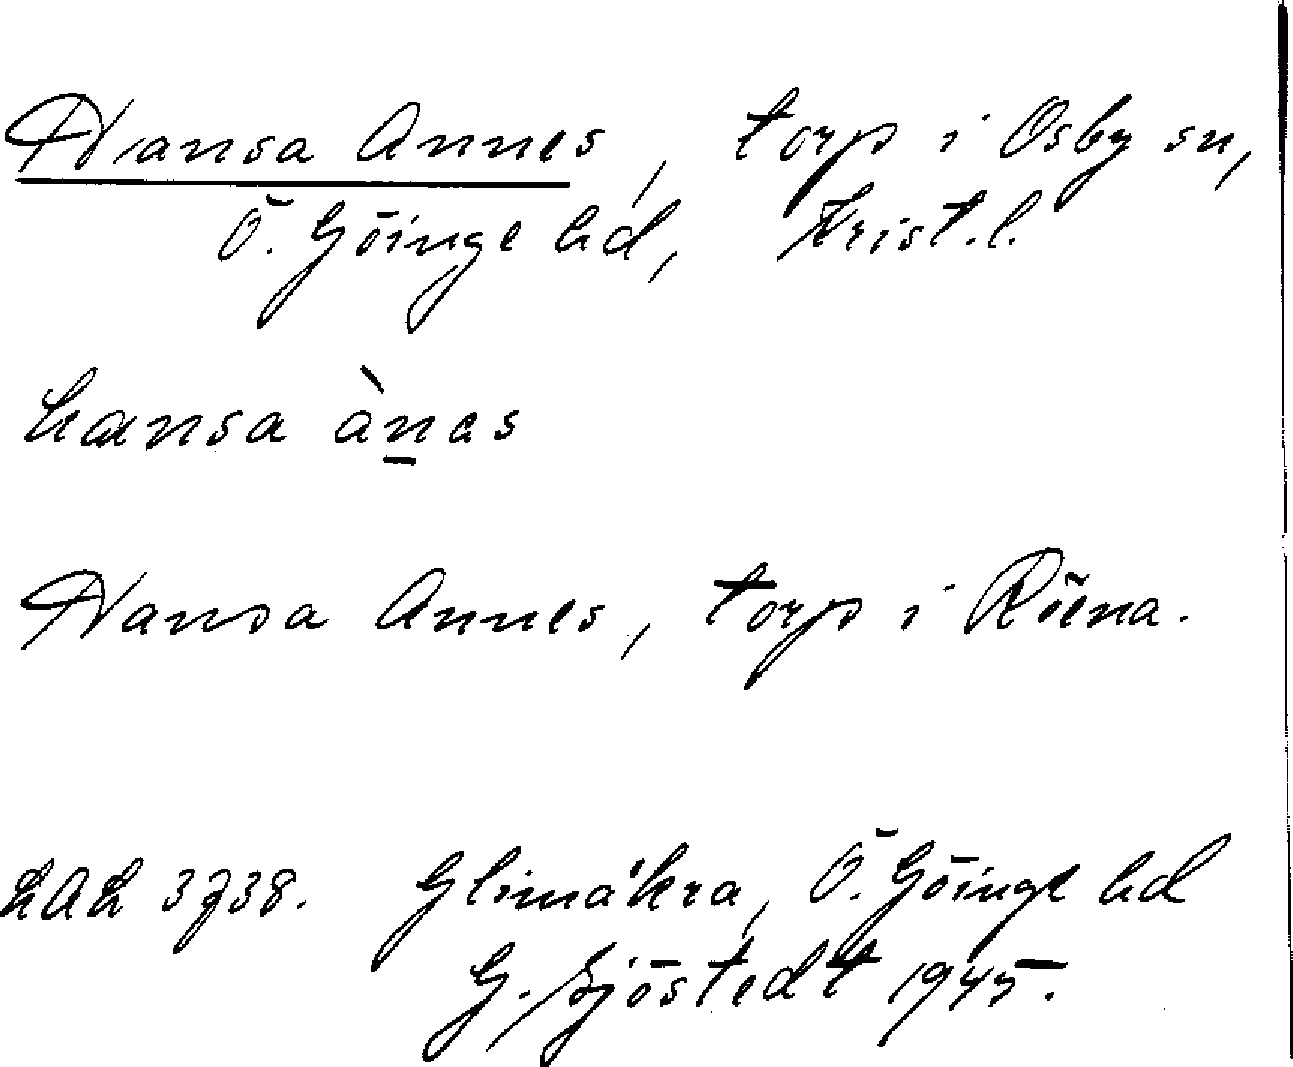 Hansa Annes, torp i Osby sn,
Ö. Göinge hd, Krist.l.
hansa ànas
Hansa Annes, torp i Röena.
LAL 3738. Glimåkra, Ö. Göinge hd
G. Sjöstedt 1945.